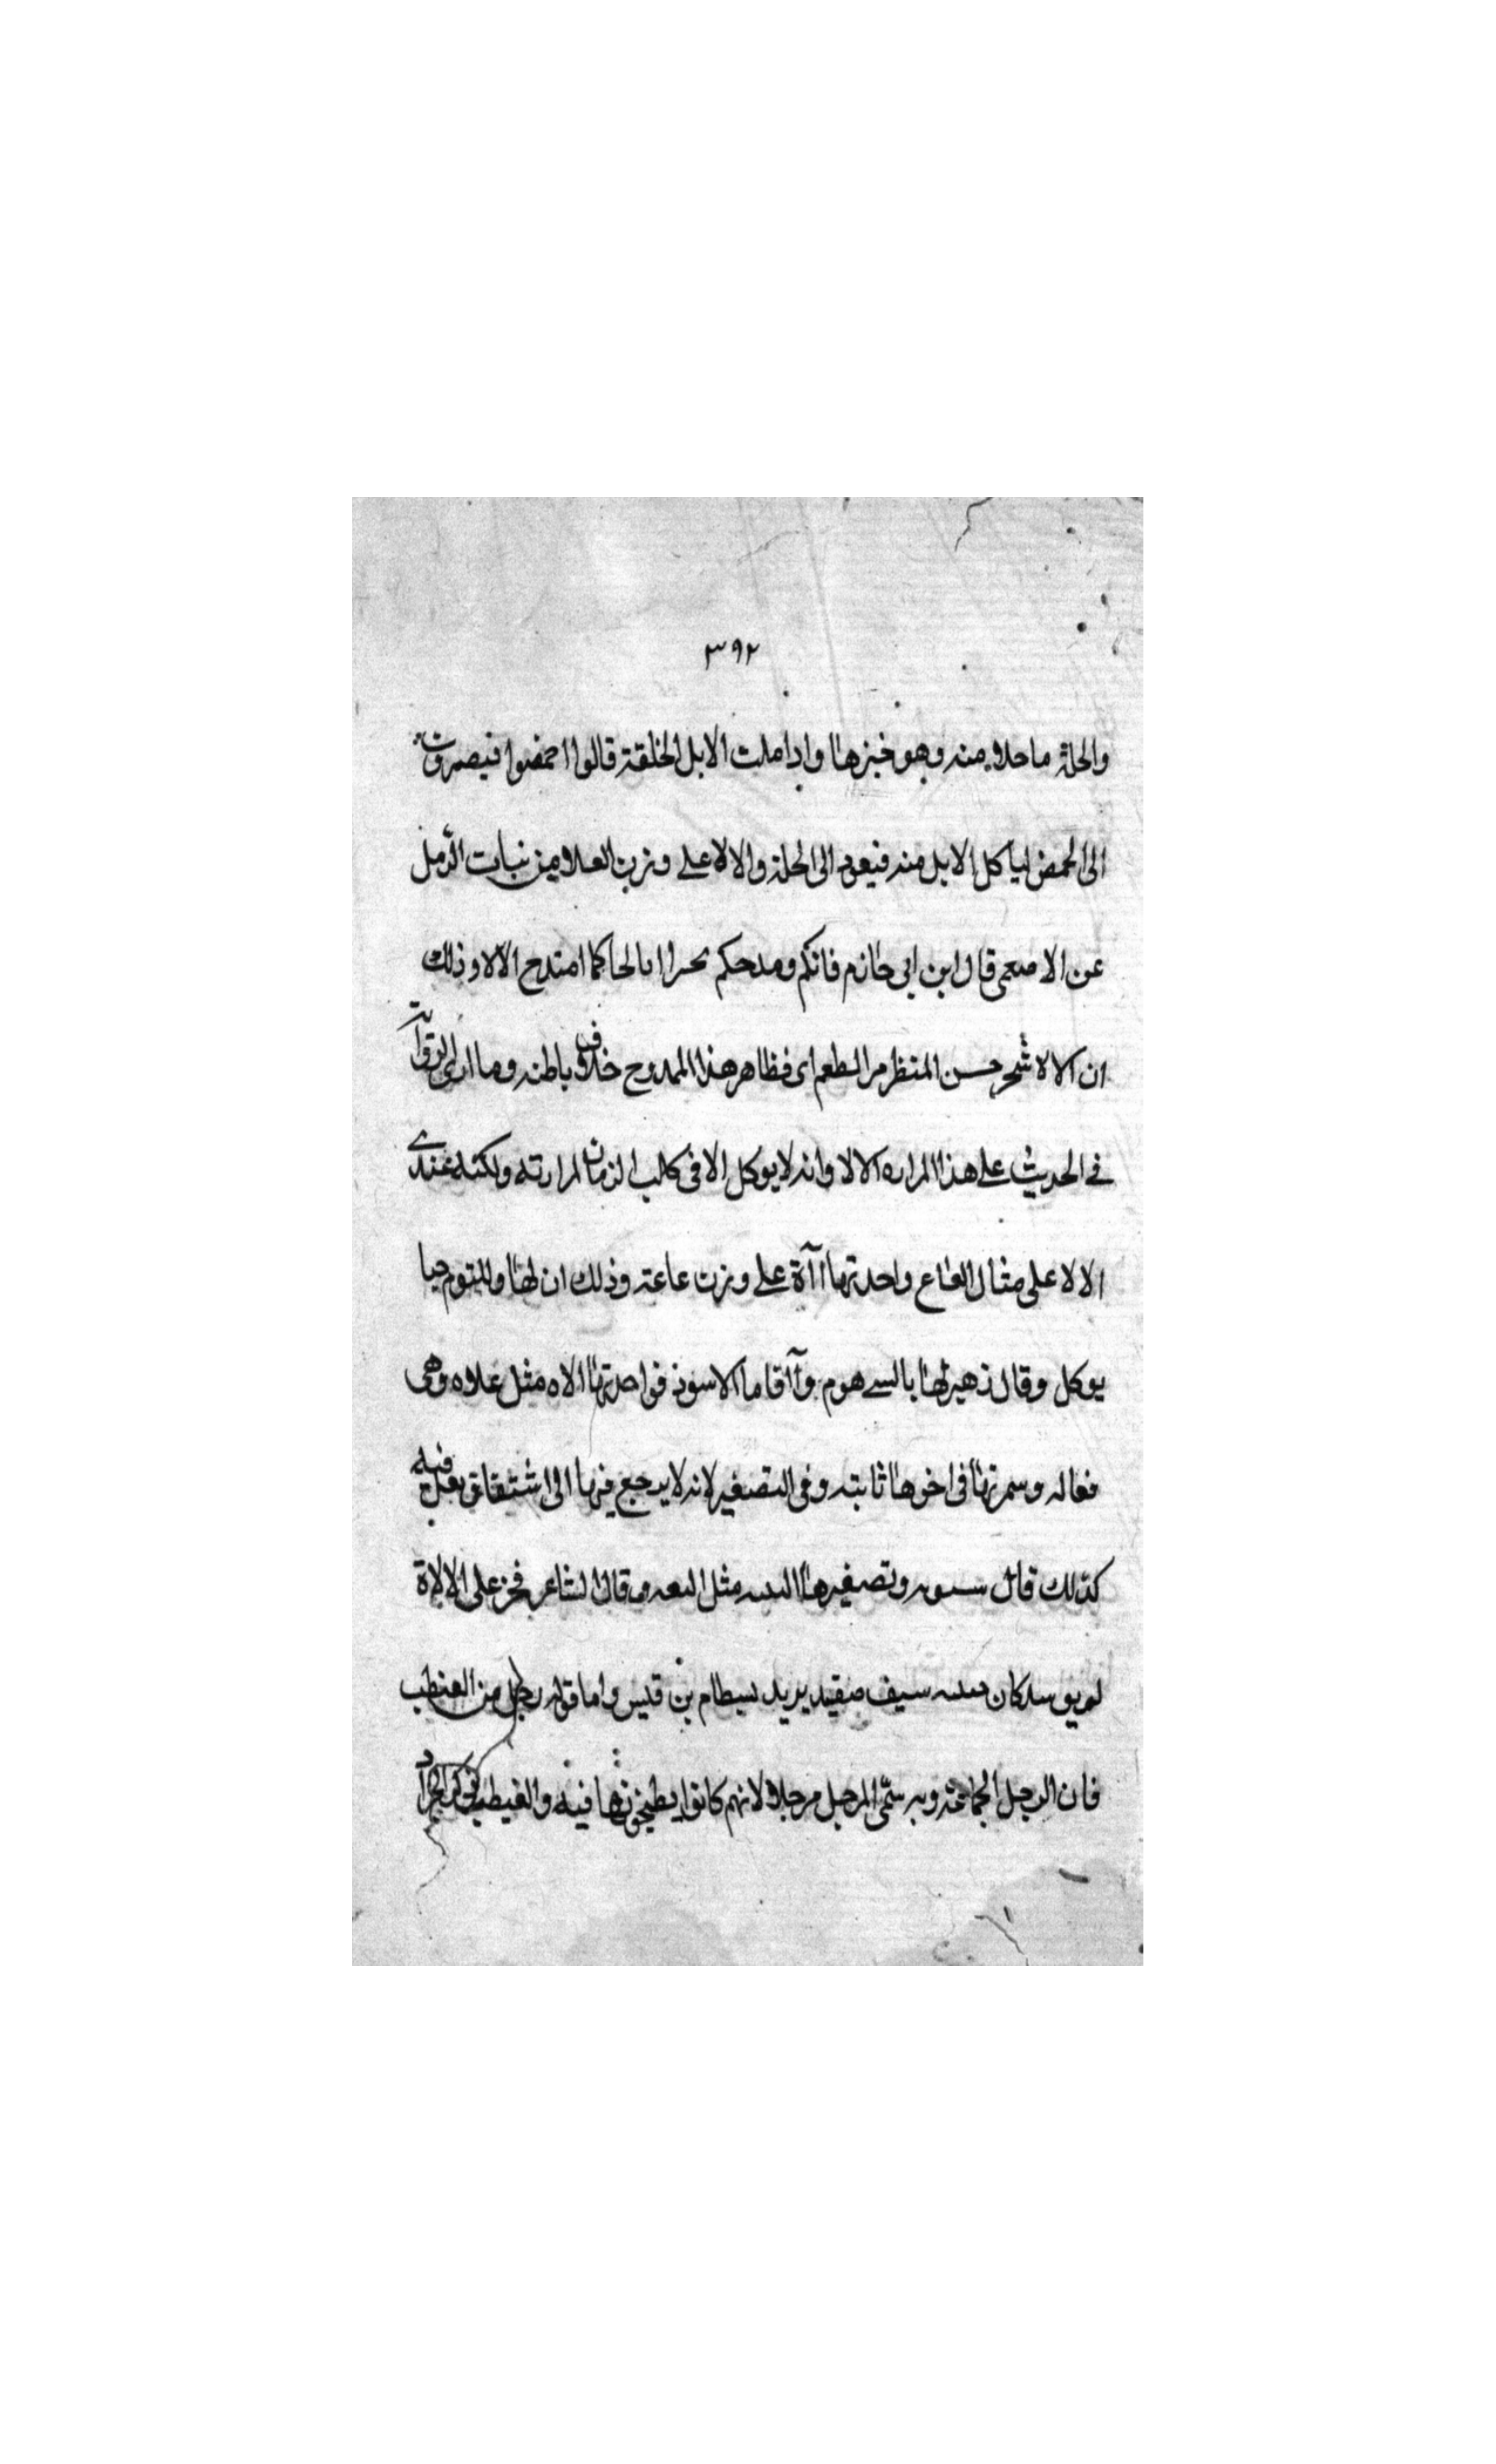 ٣٩٢
والحلة ما حلا منه وهو خبزها واداملت الابل الخلقة قالوا احمضوا فيصرون
الى الحمض لياكل الابل منه فيعود الى الحلة والالا على وزن العلا من نبات الرمل
عن الاصمعى قال ابن ابى حازم فانكم ومدحكم بحرا ابا لحا كما امتدح الالا وذلك
ان الالا شجر حسن المنظر مر الطعم اى فظاهر هذا الممدوح خلاف باطنه وما ارى الرواية
فى الحديث على هذا المراره الالا وانه لا يوكل الا فى كلب الزمان لمرارته ولكنه عندى
الالا على مثال العاع واحدتها اآة على وزن عاعة وذلك ان لها وللتنوم حبا
يوكل وقال زهير لها بالسى هوم وآاقاما الاسود فواحدتها الاه مثل علاه وهى
فعاله وسمرتها فى اخرها ثابته وفى التصغير لانه لا يرجع فيها الى اشتقاق يعل فيه
كذلك قال وتصغيرها مثل وقال الشاعر فخر على الالاة
لم يوسد كان سيف صقيد يريد بسطام بن قيس واما قوله رجل من العنطب
فان الرجل الجماعة وبه سمى المرجل مرجلا لانهم كانوا يطبخونها فيه والغيطب ذكر الجراد